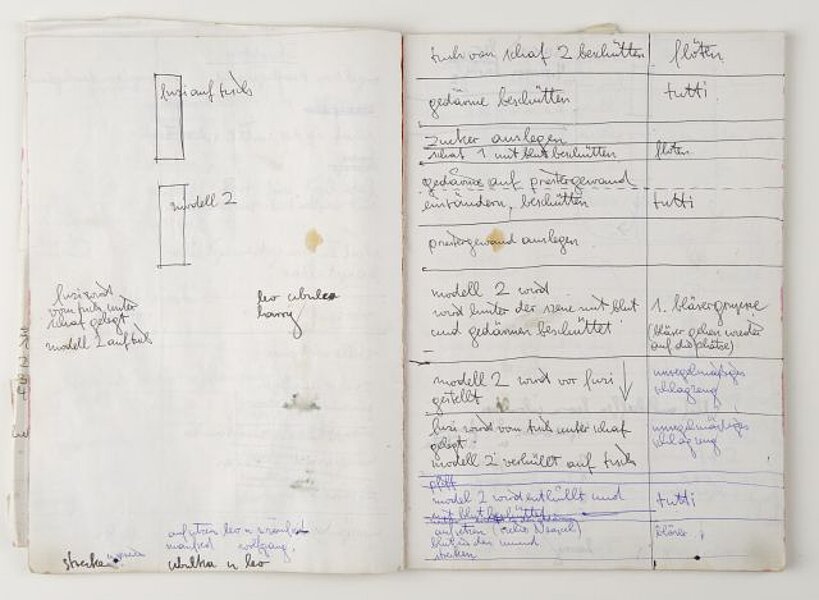 fuzi auf tisch
modell 2
fuzi wird
vom tisch unter
schaf gelegt
modell 2 auf tisch
leo cibulka
harry
auftreten leo u
manfred wolfgang
strecke
cibulka u leo
tuch von schaf 2 beschütten flöten
gedärme beschütten tutti
zucker auslegen
schaf 1 mit blut beschütten flöten
gedärme auf priestergewand
beschütten tutti
priestergewand auslegen
modell 2 wird
wird hinter der szene mit blut 1. bläsergruppe
und gedärmen beschüttet (bläser gehen wieder
auf die plätze)
modell 2 wird vor fuzi unregelmäßiges
gestellt schlagzeug
fuzi wird vom tisch unter schaf unregelmäßiges
gelegt schlagzeug
modell 2 verhüllt auf tisch
pfiff
modell 2 wird enthüllt und tutti
mit blut beschüttet
blut in den mund